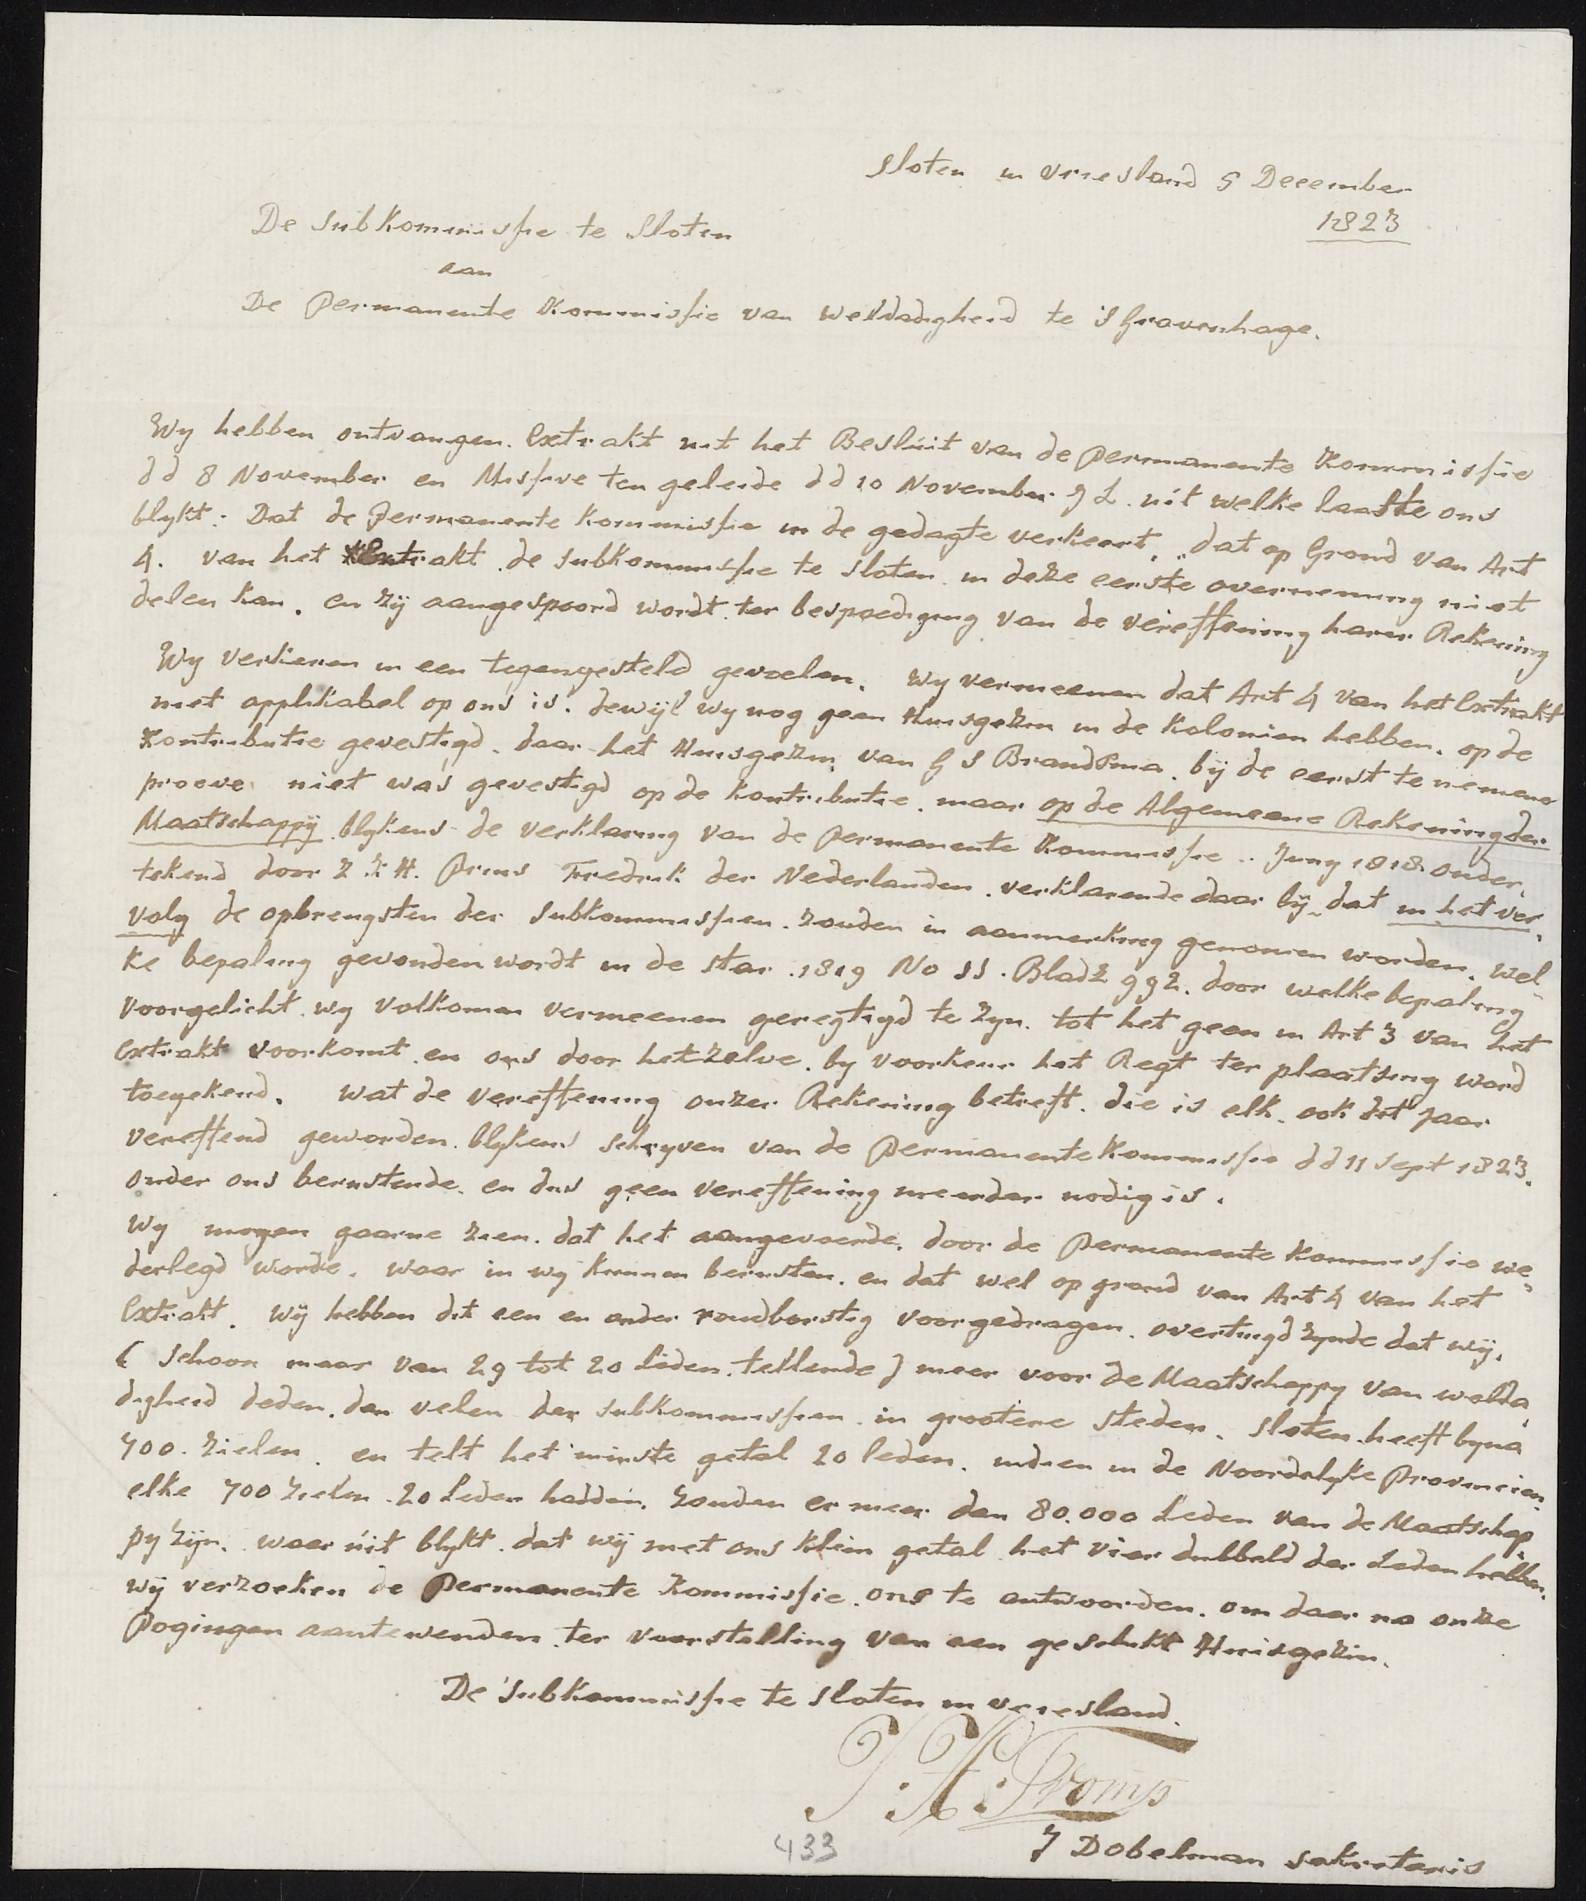 Sloten in Vriesland 5 December
1823
De Subkommissie te Sloten
aan
De Permanente Kommissie van Weldadigheid te 's Gravenhage.
Wy hebben ontvangen. Extrakt uit het Besluit van de permanente Kommissie
dd 8 November en Missive ten geleide dd 10 November J L. uit welke laatste ons
blykt: Dat de Permanente Kommissie in de gedagte verkeert, „dat op Grond van Art
4. van het Extrakt de Subkommissie te Sloten in deze eerste overneming niet
delen kan, en zij aangespoord wordt ter bespoediging van de vereffening harer Rekening
Wy verkeren in een tegengesteld gevoelen. Wy vermeenen dat Art 4 van het Extrakt
niet applikabel op ons is. dewijl wy nog geen Huisgezin in de Kolonien hebben. op de
Kontributie gevestigd. daar het Huisgezin van G S Brandsma. bij de eerst te nemene
proeve niet was gevestigd op de Kontributie. maar op de Algemeene Rekening der
Maatschappij blykens de verklaring van de Permanente Kommissie .. Juny 1818. onder,
tekend door Z K H. Prins Fredrik der Nederlanden. verklarende daar bij, dat in het ver,
volg de opbrengsten der Subkommissien. zouden in aanmerking genomen worden. wel
ke bepaling gevonden wordt in de star. 1819 No 11. Bladz 992. door welke bepaling
voorgelicht wy volkomen vermeenen geregtigd te zyn. tot het geen in Art 3 van het
Extrakt voorkomt. en ons door hetzelve. by voorkeur het Regt ter plaatsing word
toegekend. Wat de vereffening onzer Rekening betreft. die is elk. ook dit jaar
vereffend geworden. blykens schryven van de Permanente Kommissie dd 11 Sept 1823.
onder ons berustende. en dus geen vereffening meerder nodig is.
Wy mogen gaarne zien. dat het aangevoerde. door de Permanente Kommissie we,
derlegd worde. waar in wy kunnen berusten. en dat wel op grond van Art 4 van het
Extrakt. Wij hebben dit een en ander rondborstig voorgedragen. overtuigd zynde dat wij.
( schoon maar van 29 tot 20 Leden. tellende ) meer voor de Maatschappy van welda,
digheid deden. dan velen der subkommissien in grootere steden. Sloten. heeft byna
700. zielen. en telt het minste getal 20 leden. indien in de Noordelyke Provincien
elke 700 zielen. 20 Leden hadden. zouden er meer dan 80.000 Leden van de Maatschap,
py zijn. waar uit blykt. dat wij met ons klein getal. het vier dubbeld der Leden hebben.
wij verzoeken de Permanente Kommissie. ons te antwoorden. om daar na onze
Pogingen aantewenden. ter voorstelling van een geschikt Huisgezin.
De Subkommissie te Sloten in Vriesland.
Tromp
433
J Dobelman sekretaris